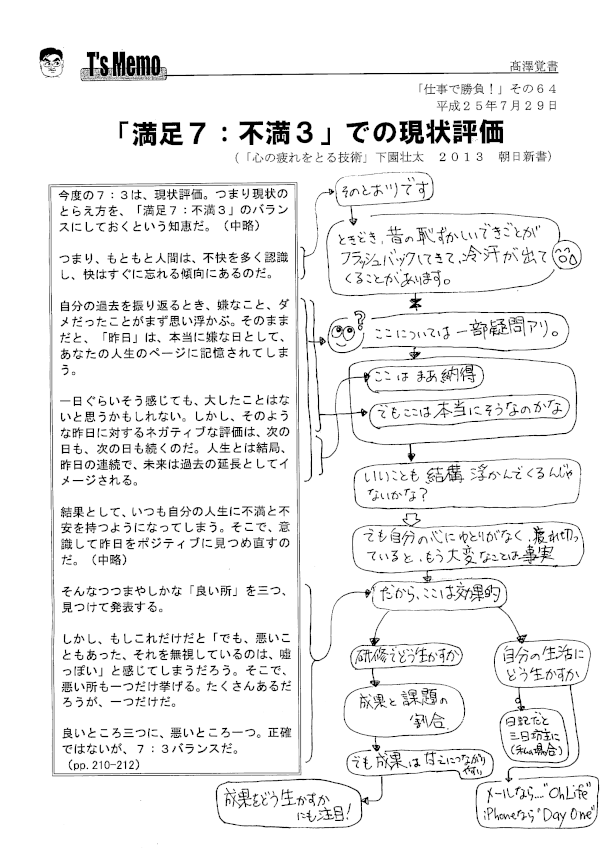 T's Memo
髙澤覚書
「仕事で勝負！」その６４
平成２５年７月２９日
「満足７：不満３」での現状評価
（「心の疲れをとる技術」下園壮太　２０１３　朝日新書）
今度の７：３は、現状評価。つまり現状の
とらえ方を、「満足７：不満３」のバラン
スにしておくという知恵だ。（中略）
つまり、もともと人間は、不快を多く認識
し、快はすぐに忘れる傾向にあるのだ。
自分の過去を振り返るとき、嫌なこと、ダ
メだったことがまず思い浮かぶ。そのまま
だと、「昨日」は、本当に嫌な日として、
あなたの人生のページに記憶されてしま
う。
一日ぐらいそう感じても、大したことはな
いと思うかもしれない。しかし、そのよう
な昨日に対するネガティブな評価は、次の
日も、次の日も続くのだ。人生とは結局、
昨日の連続で、未来は過去の延長としてイ
メージされる。
結果として、いつも自分の人生に不満と不
安を持つようになってしまう。そこで、意
識して昨日をポジティブに見つめ直すの
だ。（中略）
そんなつつまやしかな「良い所」を三つ、
見つけて発表する。
しかし、もしこれだけだと「でも、悪いこ
ともあった、それを無視しているのは、嘘
っぽい」と感じてしまうだろう。そこで、
悪い所も一つだけ挙げる。たくさんあるだ
ろうが、一つだけだ。
良いところ三つに、悪いところ一つ。正確
ではないが、７：３バランスだ。
（pp.210-212）
そのとおりです
ときどき、昔の恥ずかしいできごとが
フラッシュバックしてきて、冷汗が出て
くることがあります。
？
ここについては一部疑問アリ。
ここはまあ納得
でもここは本当にそうなのかな
いいことも結構浮かんでくるんじゃ
ないかな？
でも自分の心にゆとりがなく、疲れ切っ
ていると、もう大変なことは事実
だから、ここは効果的
研修でどう生かすか
成果と課題の
割合
でも成果は甘えにつながり
やすい
成果をどう生かすか
にも注目！
自分の生活に
どう生かすか
日記だと
三日坊主に
（私の場合）
メールなら…"OhLife"
iPhoneなら"Day One"